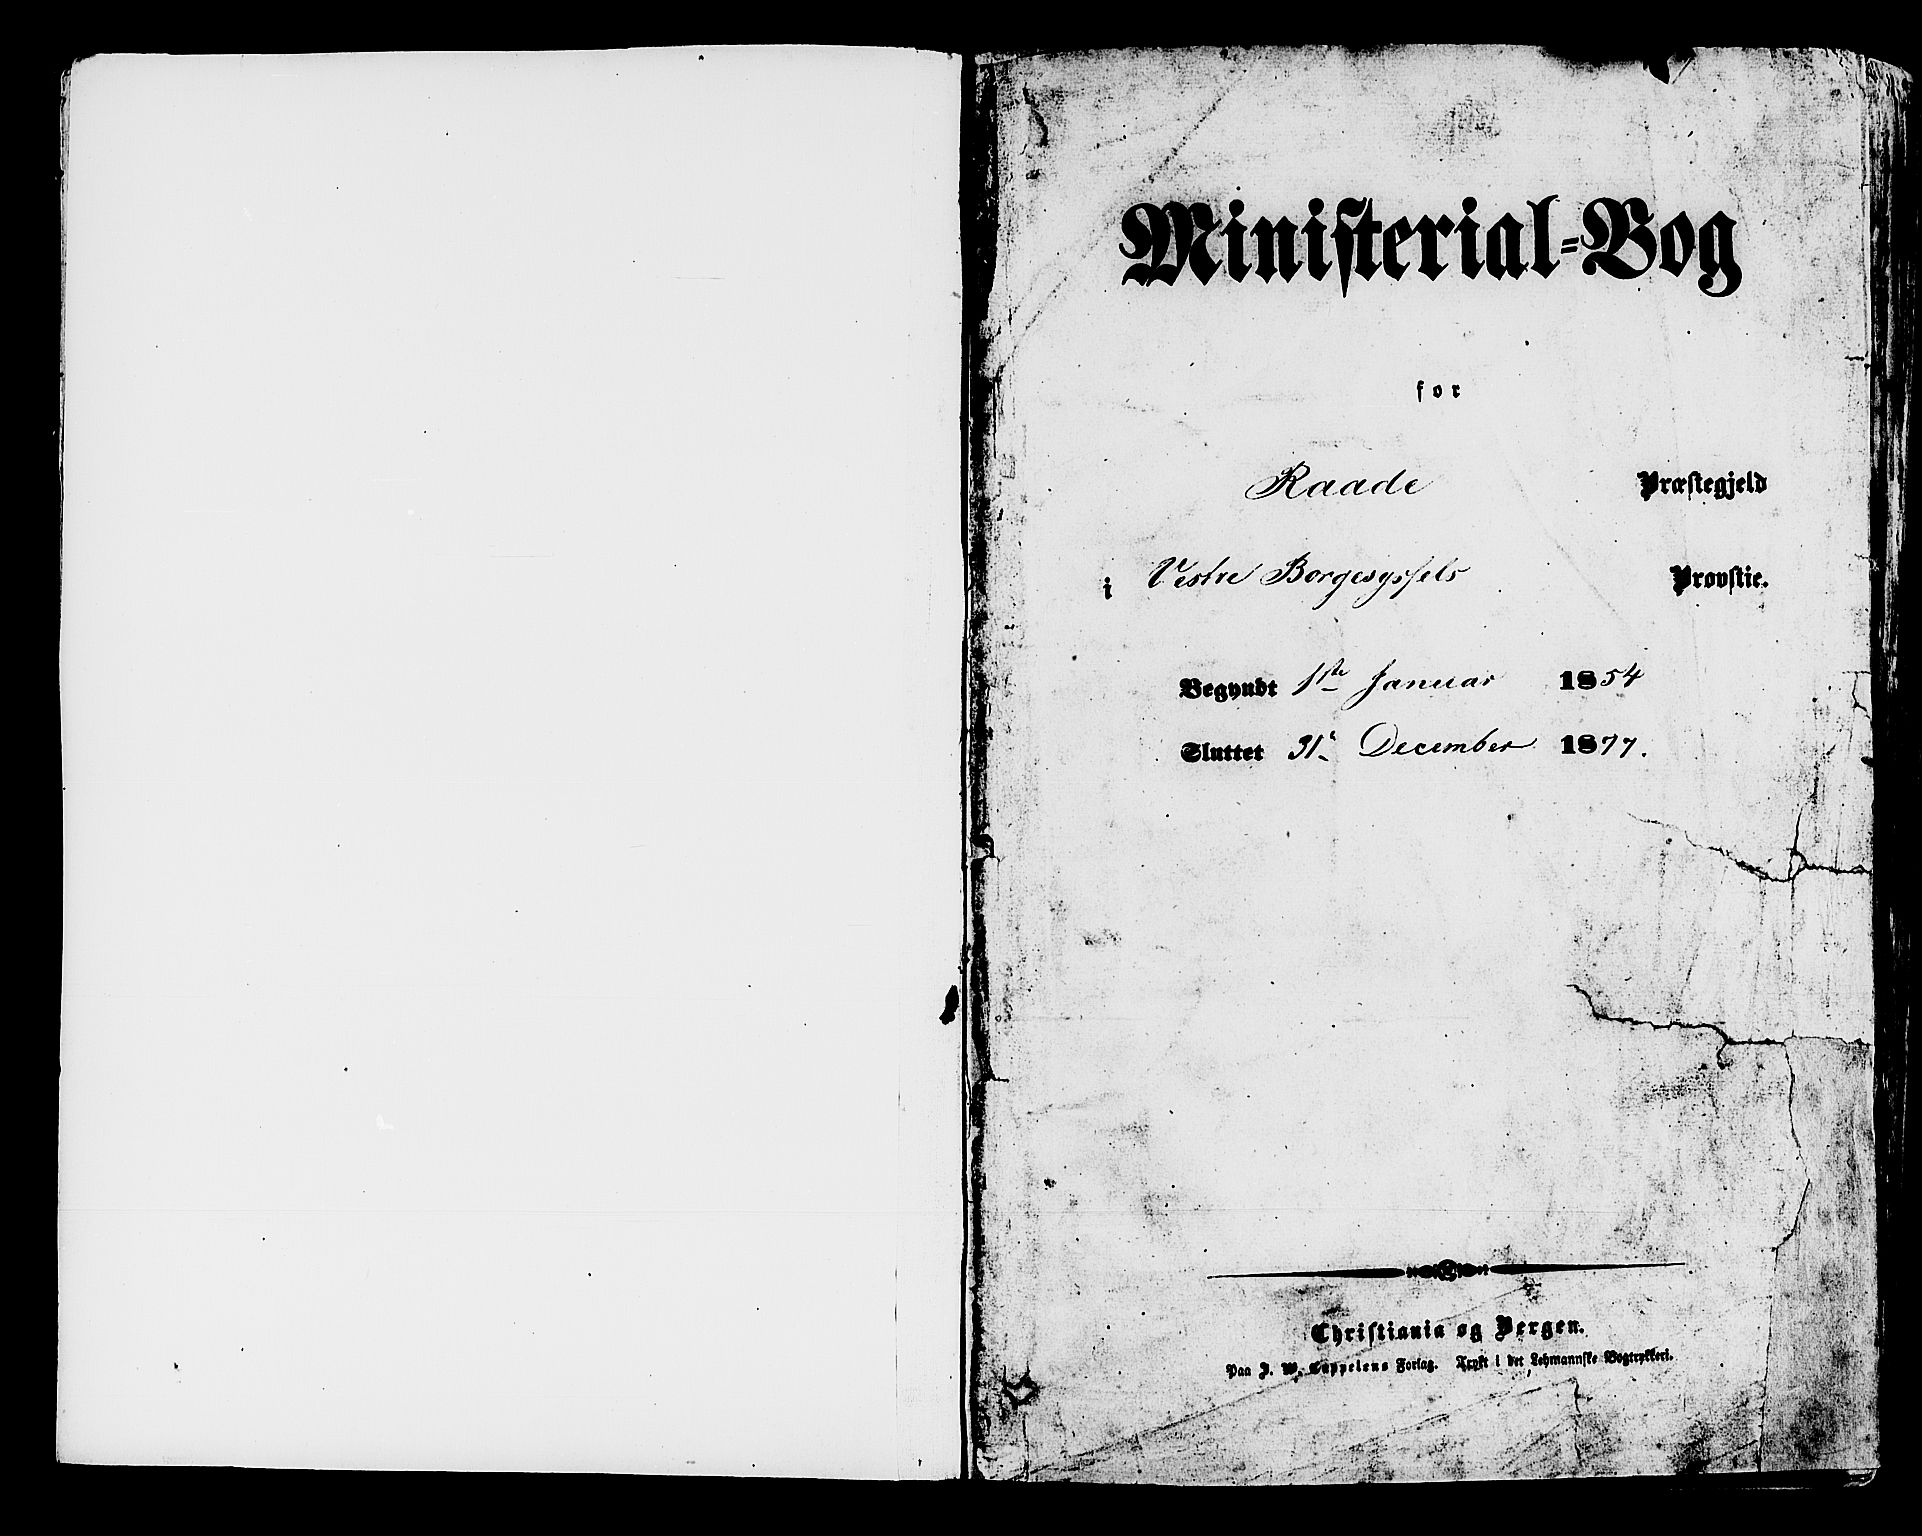 Ministerial-Bog
for
Raade Præstegjeld
i Vestre Borgesyssels Provstie.
Begyndt 1ste Januar 1854
Sluttet 31te December 1877.
Christiania og Bergen.
Paa J. W. Cappelens Forlag. Trykt i det Lehmannske Bogtrykkeri.